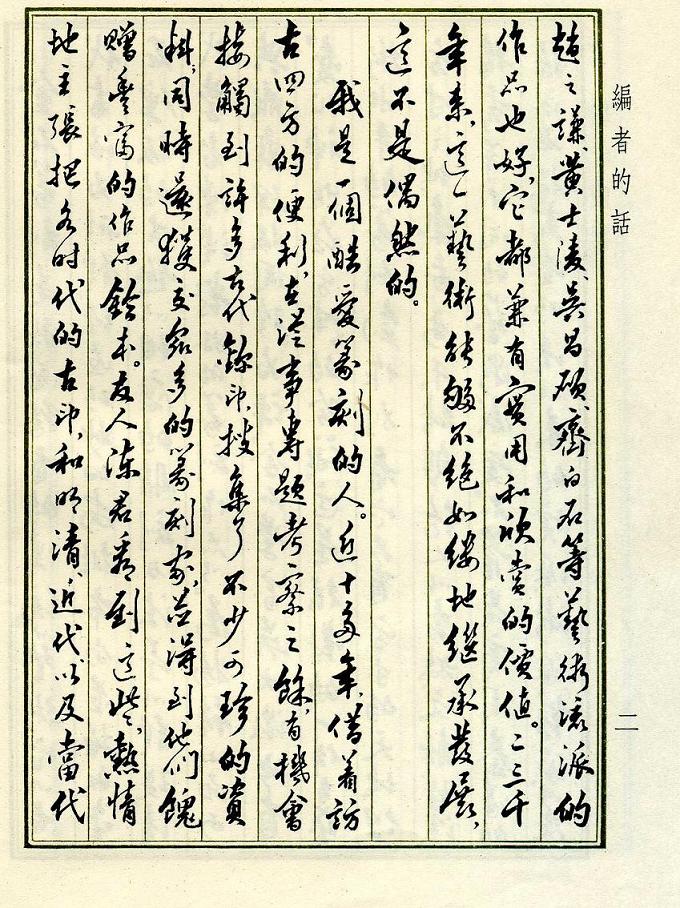 編者的話
趙之謙、黃士陵、吳昌碩、齊白石等藝術流派的
作品也好，它都兼有實用和欣賞的價值。二三千
年來，這一藝術能夠不絕如縷地繼承發展，
這不是偶然的。
我是一個酷愛篆刻的人。近十多年，借着訪
古四方的便利，在從事專題考察之餘，有機會
接觸到許多古代鉥印，搜集了不少可珍的資
料；同時還獲交衆多的篆刻家，並得到他們餽
贈豐富的作品鈐本。友人陳君看到這些，熱情
地主張把各时代的古印，和明清、近代以及當代
二